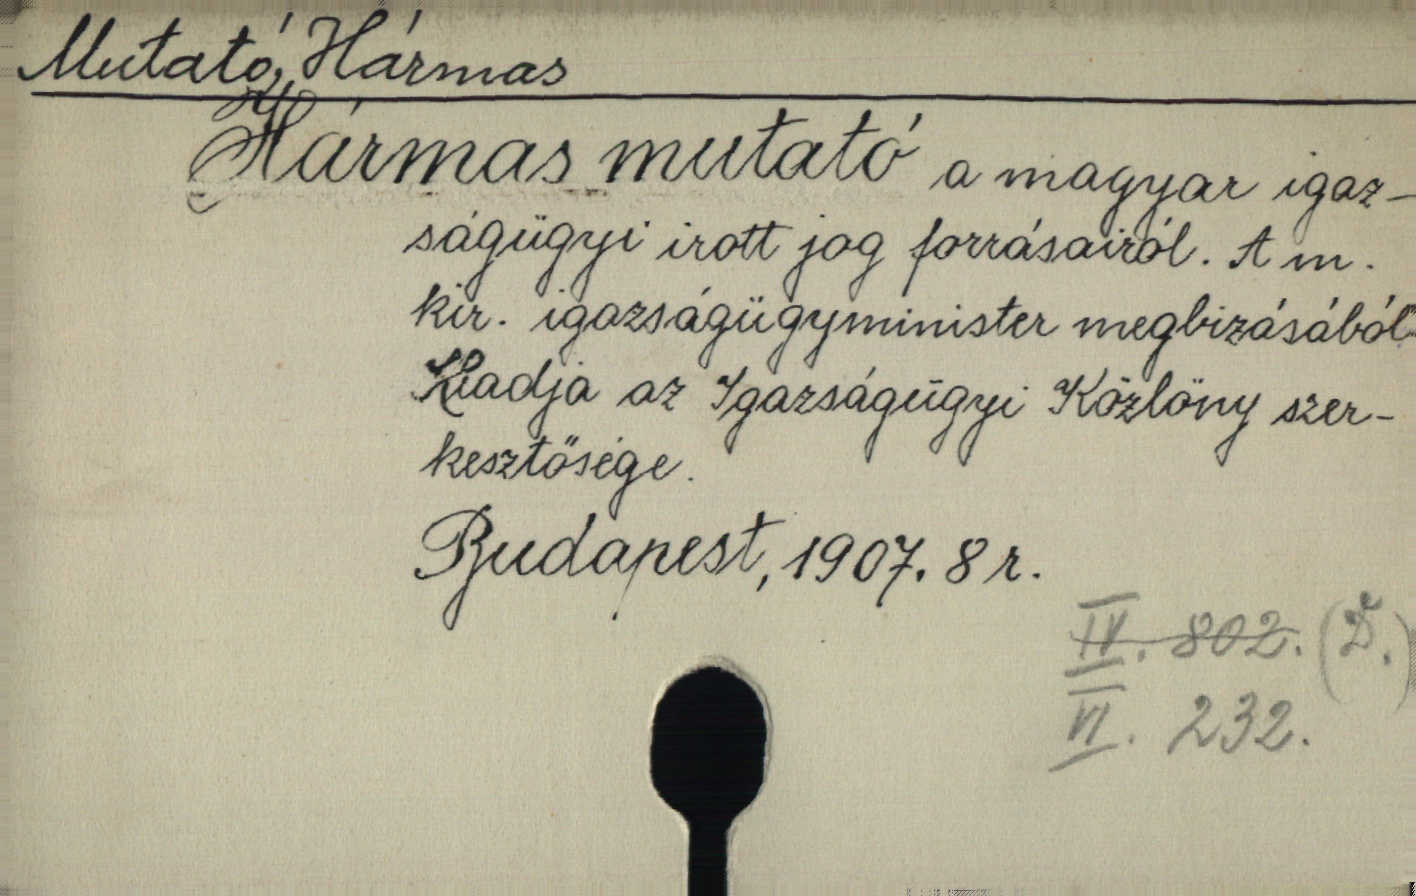 Mutató, Hármas
Hármas mutató a magyar igaz-
ságügyi irott jog forrásairól. A m.
kir. igazságügyminister megbizásából
Kiadja az Igazságügyi Közlöny szer-
kesztősége.
Budapest, 1907. 8 r.
IV. 802. (D.)
VI. 232.